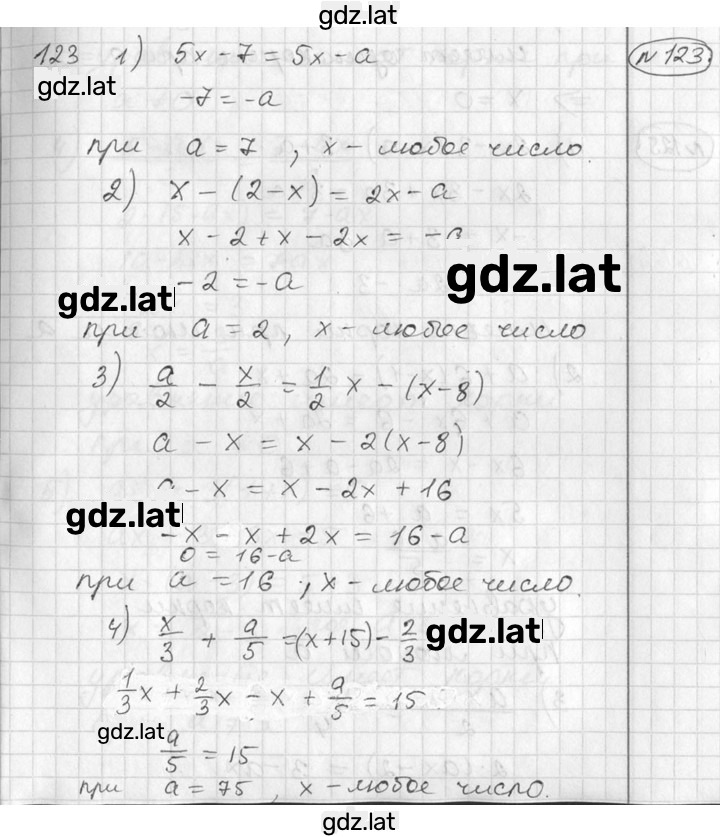 gdz.lat
123 1) 5x - 7 = 5x - a
№ 123.
gdz.lat
-7 = -a
при a = 7, x - любое число.
2) x - (2 - x) = 2x - a
x - 2 + x - 2x = -a
gdz.lat
-2 = -a
gdz.lat
при a = 2, x - любое число
3) a/2 - x/2 = 1/2 x - (x - 8)
a - x = x - 2(x - 8)
- x = x - 2x + 16
gdz.lat
-x - x + 2x = 16 - a
0 = 16 - a
при a = 16, x - любое число.
4) x/3 + a/5 = (x + 15) - 2/3
gdz.lat
1/3 x + 2/3 x - x + a/5 = 15
gdz.lat
a/5 = 15
при a = 75, x - любое число.
gdz.lat